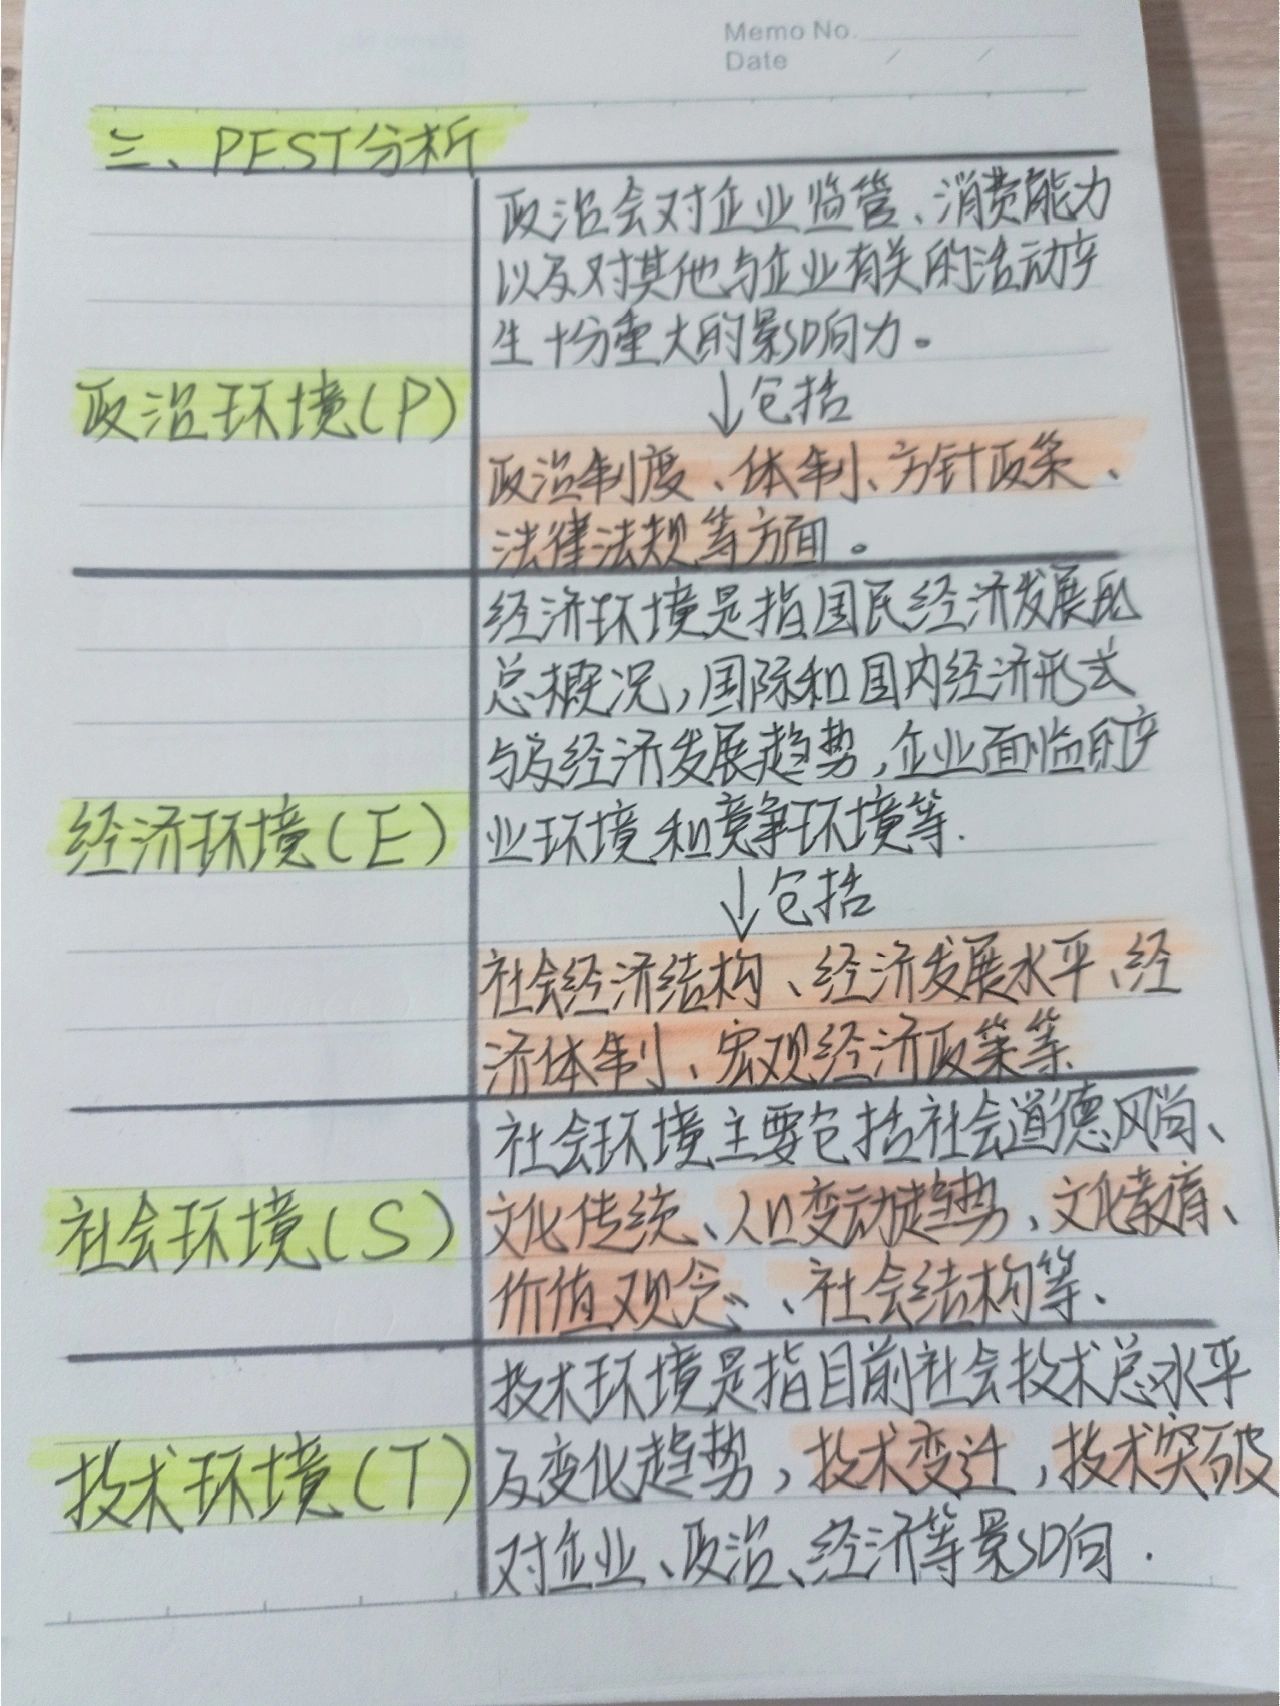 Memo No.
Date / /
三、PEST分析
政治会对企业监管、消费能力
以及对其他与企业有关的活动产
生十分重大的影响力。
政治环境(P)
↓包括
政治制度、体制、方针政策、
法律法规等方面。
经济环境是指国民经济发展的
总概况,国际和国内经济形式
与及经济发展趋势,企业面临的产
经济环境(E)
业环境和竞争环境等.
↓包括
社会经济结构、经济发展水平、经
济体制、宏观经济政策等.
社会环境主要包括社会道德风尚、
社会环境(S)
文化传统、人口变动趋势、文化教育、
价值观念、社会结构等、
技术环境是指目前社会技术总水平
技术环境(T)
及变化趋势,技术变迁,技术突破
对企业、政治、经济等影响.